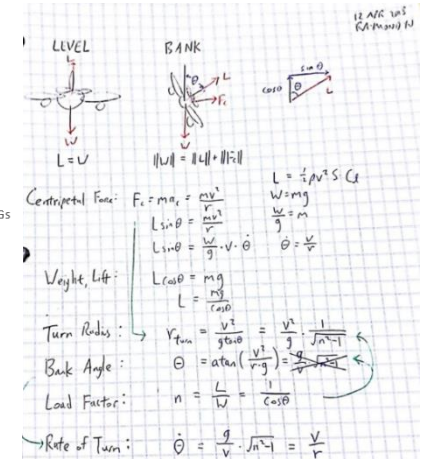 12 APR 203
RAYMOND N
LEVEL
BANK
L
W
L = W
θ
L
Fc
W
||W|| = ||L|| + ||Fc||
sin θ
cos θ
θ
L
L = ½ρv² S·Cl
W = mg
W/g = m
Gs
Centripetal Force: Fc = mac = mv²/r
L sin θ = mv²/r
L sin θ = W/g · v · θ̇
θ̇ = v/r
Weight, Lift: L cos θ = mg
L = mg/cos θ
Turn Radius: r turn = v²/(g tan θ) = v²/g · 1/√(n²-1)
Bank Angle: θ = atan(v²/(r·g)) = g/v √(n²-1)
Load Factor: n = L/W = 1/cos θ
Rate of Turn: θ̇ = g/v · √(n²-1) = v/r